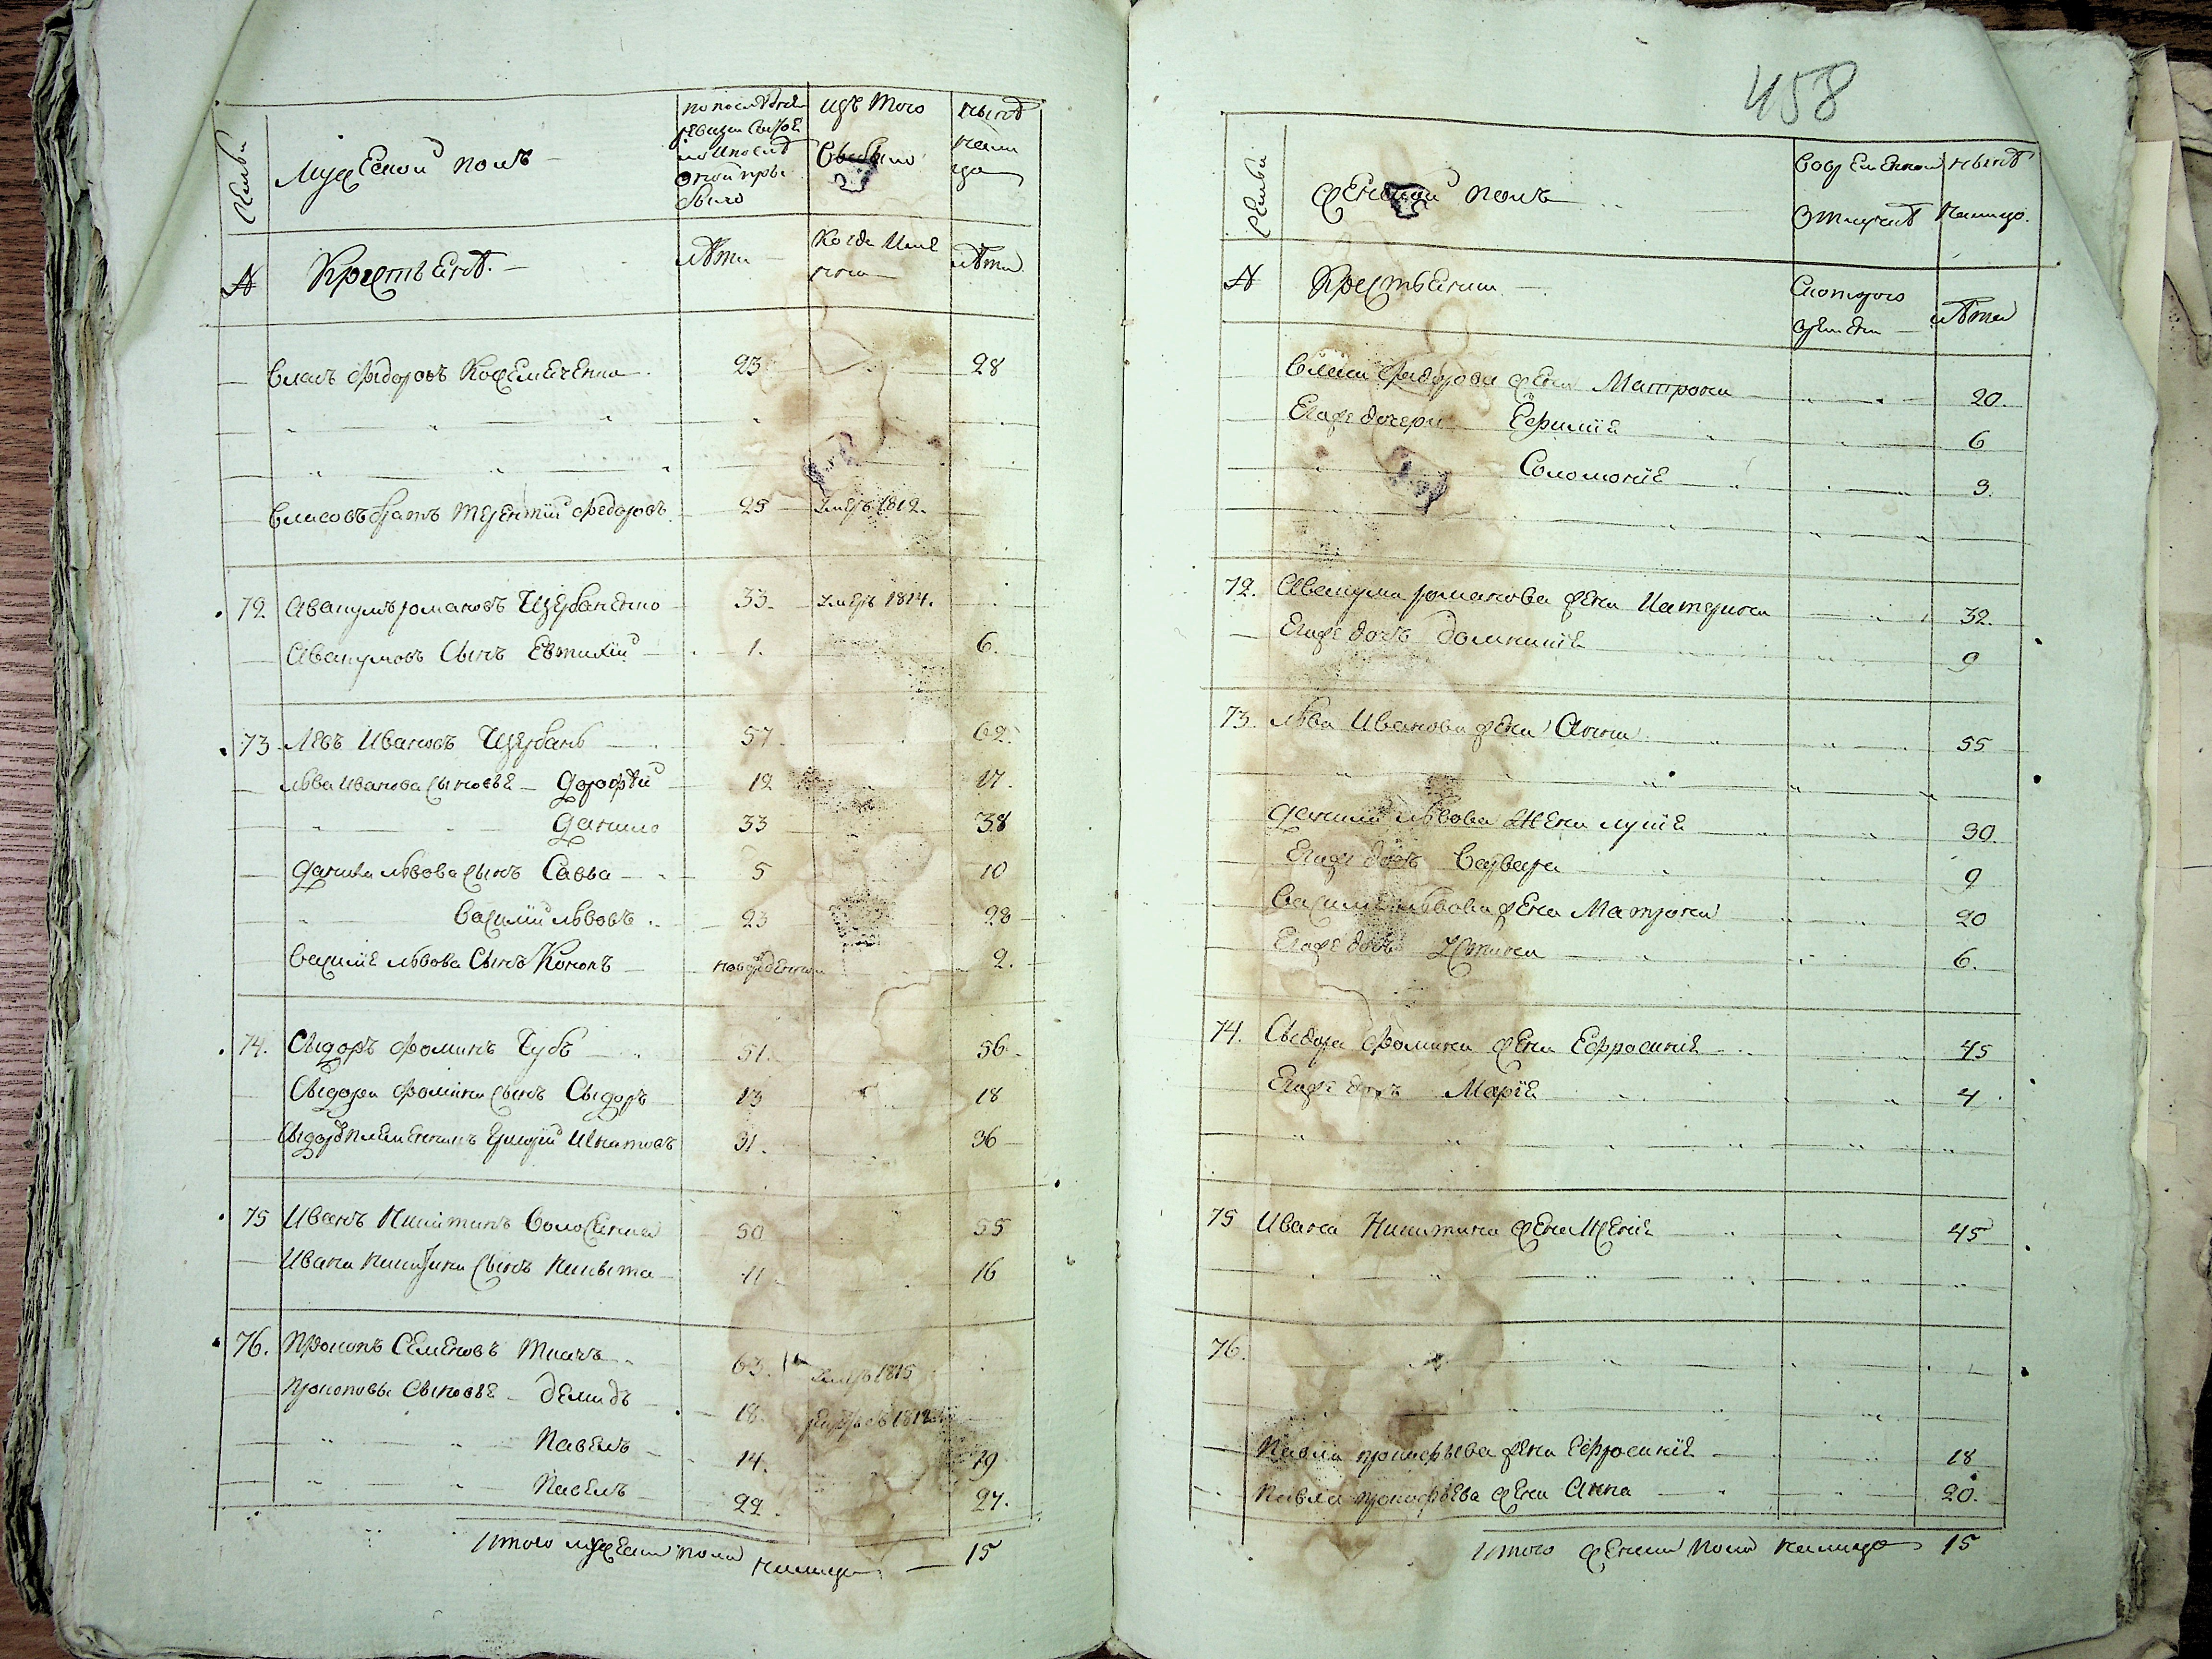 458
Семьи
Мужеской полъ
по последней
ревизии состоя
ло и после
оной прибы
было
изъ того
выбыло
ныне
на ли
цо
№
Крестьяне.
лета
когда име
нно
лета
Власъ Федоровъ Кожемяченко 23 28
Власовъ братъ Терентий Федоровъ 25 умеръ 1812.
72 Авакумъ Романовъ Щербаненко 33. умеръ 1814.
Авакумовъ сынъ Евтихий 1. 6.
73 Левъ Ивановъ Щербань 57 62.
Льва Иванова сыновья Дорофей 12 17.
Данило 33 38
Данила Львова сынъ Савва 5 10
Василий Львовъ 23 28
Василия Львова сынъ Кононъ новорожденной 2.
74. Сыдоръ Фоминъ Чубъ 51. 56.
Сыдора Фомина сынъ Сыдоръ 13 18
Сыдора племянникъ Григорий Игнатовъ 31. 36
75 Иванъ Никитинъ 50 55
Ивана Никитина сынъ Никыта 11 16
76. Прокопъ Семеновъ Ткачъ 63. умеръ 1815
Прокоповы сыновья Демидъ 18. 1812
Павелъ 14. 19
Павелъ 22 27.
Итого мужеска пола налицо 15
Семьи
Женской полъ
во временной
отлучке
ныне
налицо.
№
Крестьянки
с котораго
времени
лета
Власа Федорова жена Матрона 20.
Его же дочери Ефимия 6
Соломония 3.
72. Авакума Романова жена Катерина 32.
Его же дочь Домникия 9
73. Льва Иванова жена Анна 55
Данила Львова жена Лукия 30.
Его же дочь Варвара 9
Василия Львова жена Матрона 20
Его же дочь Устина 6.
74. Сыдора Фомина жена Ефросиния 45
Его же дочь Мария 4
75 Ивана Никитина жена Ксения 45
76.
Павла Прокофьева жена Ефросиния 18
Павла Прокофьева жена Анна 20.
Итого женска пола налицо 15